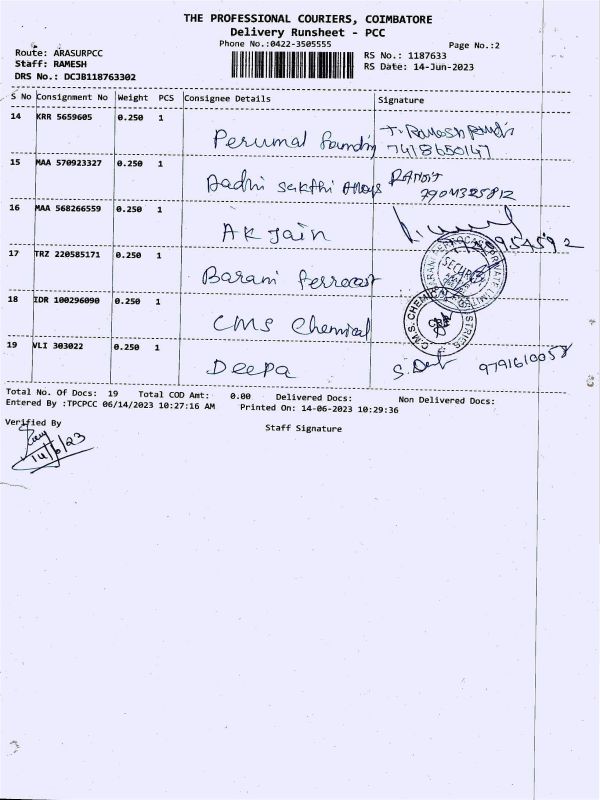 THE PROFESSIONAL COURIERS, COIMBATORE
Delivery Runsheet - PCC
Phone No.:0422-3505555
Page No.:2
Route: ARASURPCC
Staff: RAMESH
DRS No.: DCJB118763302
RS No.: 1187633
RS Date: 14-Jun-2023
S No Consignment No Weight PCS Consignee Details Signature
14 KRR 5659605 0.250 1 Perumal foundry
7418650147
15 MAA 570923327 0.250 1 Aadhi sakthi Alloys RANJIT
7904325812
16 MAA 568266559 0.250 1 AK Jain
17 TRZ 220585171 0.250 1 Barani ferrocast
SECURITY
18 IDR 100296090 0.250 1 CMS Chemical
C.M.S. CHEMICAL INDUSTRIES
19 VLI 303022 0.250 1 Deepa 9791610058
Total No. Of Docs: 19 Total COD Amt: 0.00 Delivered Docs: Non Delivered Docs:
Entered By :TPCPCC 06/14/2023 10:27:16 AM Printed On: 14-06-2023 10:29:36
Verified By
Staff Signature
14/6/23